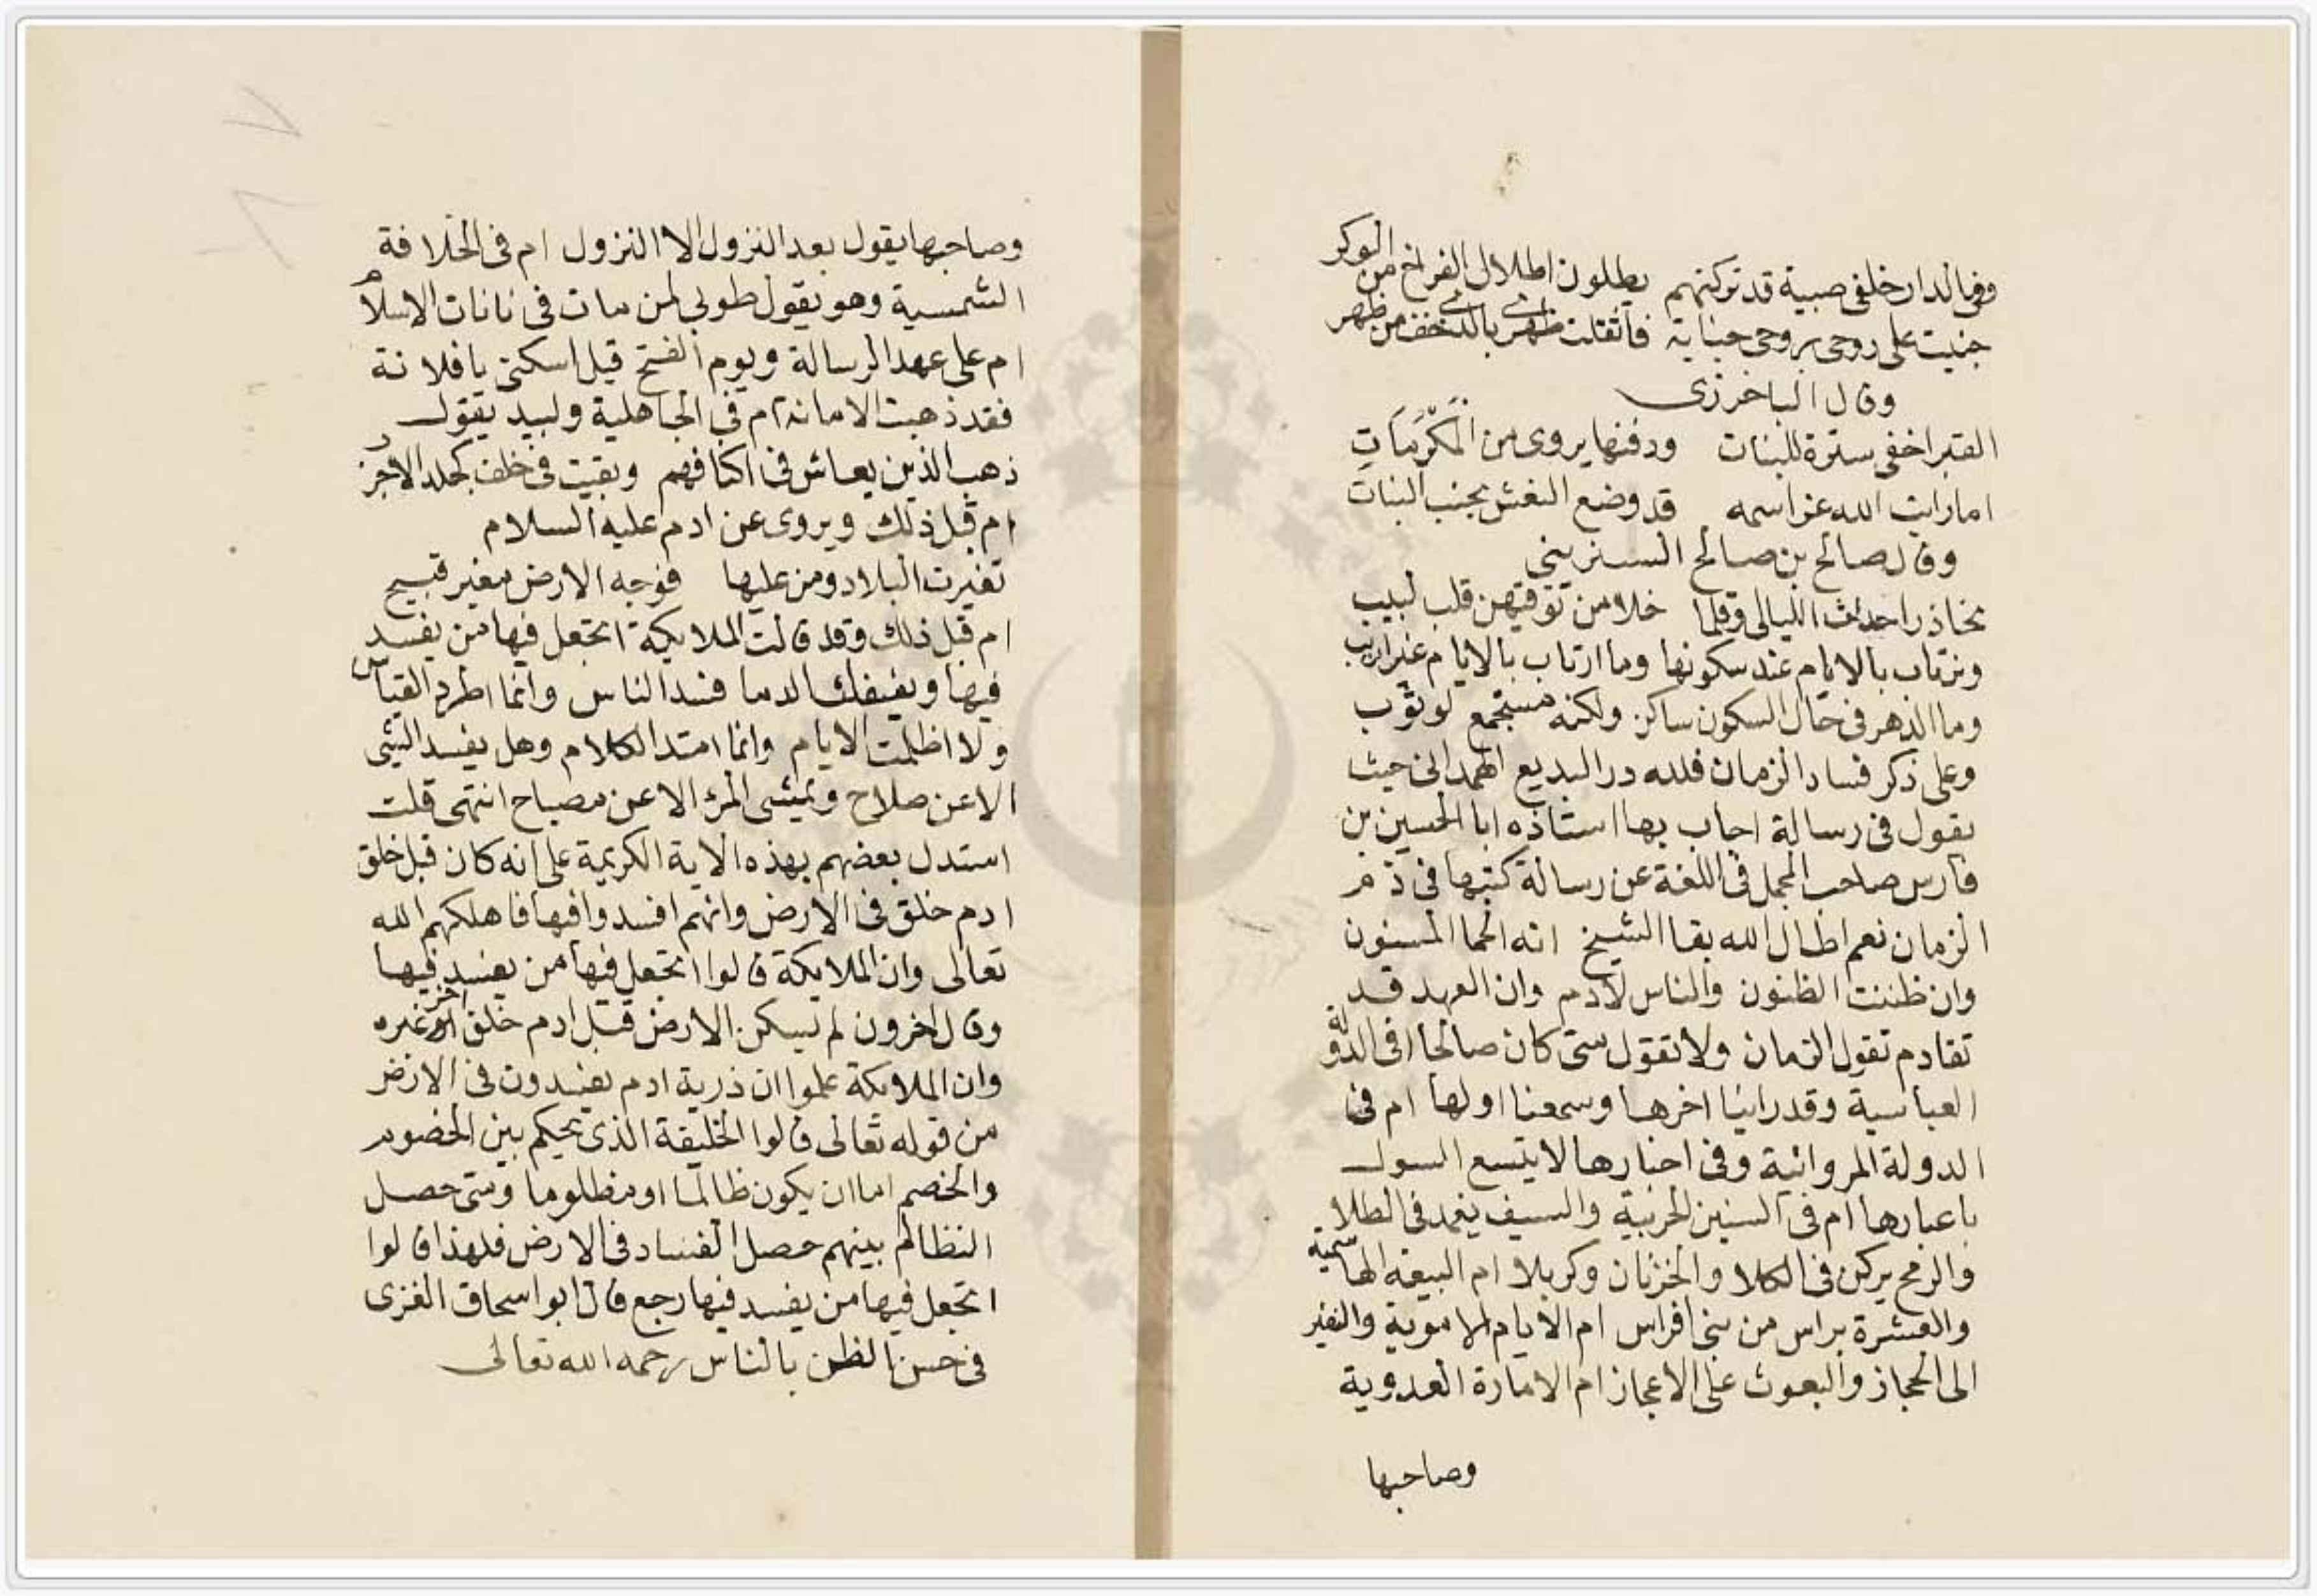 وفى الدار خلفى صبية قد تركتهم يطلون اطلال الفراخ من الوكر
جنيت على روحى بروحى جناية فاثقلت ظهرى بالذى خف من ظهر
وقال الباخرزى
القبر اخفى سترة للبنات ودفنها يروى من المكرمات
اما رايت الله عز اسمه قد وضع النعش بجنب البنات
وقال صالح بن صالح الشنترينى
نحاذر احداث الليالى وقلما خلا من توقيهن قلب لبيب
ونرتاب بالايام عند سكونها وما ارتاب بالايام غير اريب
وما الدهر فى حال السكون ساكن ولكنه مستجمع لوثوب
وعلى ذكر فساد الزمان فلله در البديع الهمدانى حيث
يقول فى رسالة اجاب بها استاذه ابا الحسين بن
فارس صاحب المجمل فى اللغة عن رسالة كتبها فى ذم
الزمان نعم اطال الله بقا الشيخ انه الحما المسنون
وان ظننت الظنون والناس لادم وان العهد قد
تقادم تقول الزمان ولا تقول متى كان صالحا افى الدولة
العباسية وقد راينا اخرها وسمعنا اولها ام فى
الدولة المروانية وفى اخبارها لا يتسع السول
باعبارها ام فى السنين الحربية والسيف يغمد فى الطلا
والرمح يركن فى الكلا والخزنان وكربلا ام البيعه الهاشمية
والعشرة براس من بنى افراس ام الايام الاموية والنفير
الى الحجاز والبعوث على الاعجاز ام الامارة العدوية
وصاحبها
وصاحبها يقول بعد النزول الا النزول ام فى الخلافة
التيمسية وهو يقول طوبى لمن مات فى نانات الاسلام
ام على عهد الرسالة ويوم الفتح قيل اسكتى يا فلانة
فقد ذهبت الامانة ام فى الجاهلية ولبيد يقول
ذهب الذين يعاش فى اكنافهم وبقيت فى خلف كجلد الاجرب
ام قبل ذلك ويروى عن ادم عليه السلام
تغيرت البلاد ومن عليها فوجه الارض مغبر قبيح
ام قبل ذلك وقد قالت الملايكة اتجعل فيها من يفسد
فيها ويسفك الدما فسد الناس وانما اطرد القياس
ولا اظلمت الايام وانما امتد الكلام وهل يفسد الشى
الا عن صلاح ويمشى المرء الا عن مصباح انتهى قلت
استدل بعضهم بهذه الاية الكريمة على انه كان قبل خلق
ادم خلق فى الارض وانهم افسدوا فيها فاهلكهم الله
تعالى وان الملايكة قالوا اتجعل فيها من يفسد فيها
وقال اخرون لم يسكن الارض قبل ادم خلق اخر غيره
وان الملايكة علموا ان ذرية ادم يفسدون فى الارض
من قوله تعالى قالوا الخليفة الذى يحكم بين الخصوم
والخصم اما ان يكون ظالما او مظلوما ومتى حصل
التظالم بينهم حصل الفساد فى الارض فلهذا قالوا
اتجعل فيها من يفسد فيها رجع قال ابو اسحاق الغزى
فى حسن الظن بالناس رحمه الله تعالى